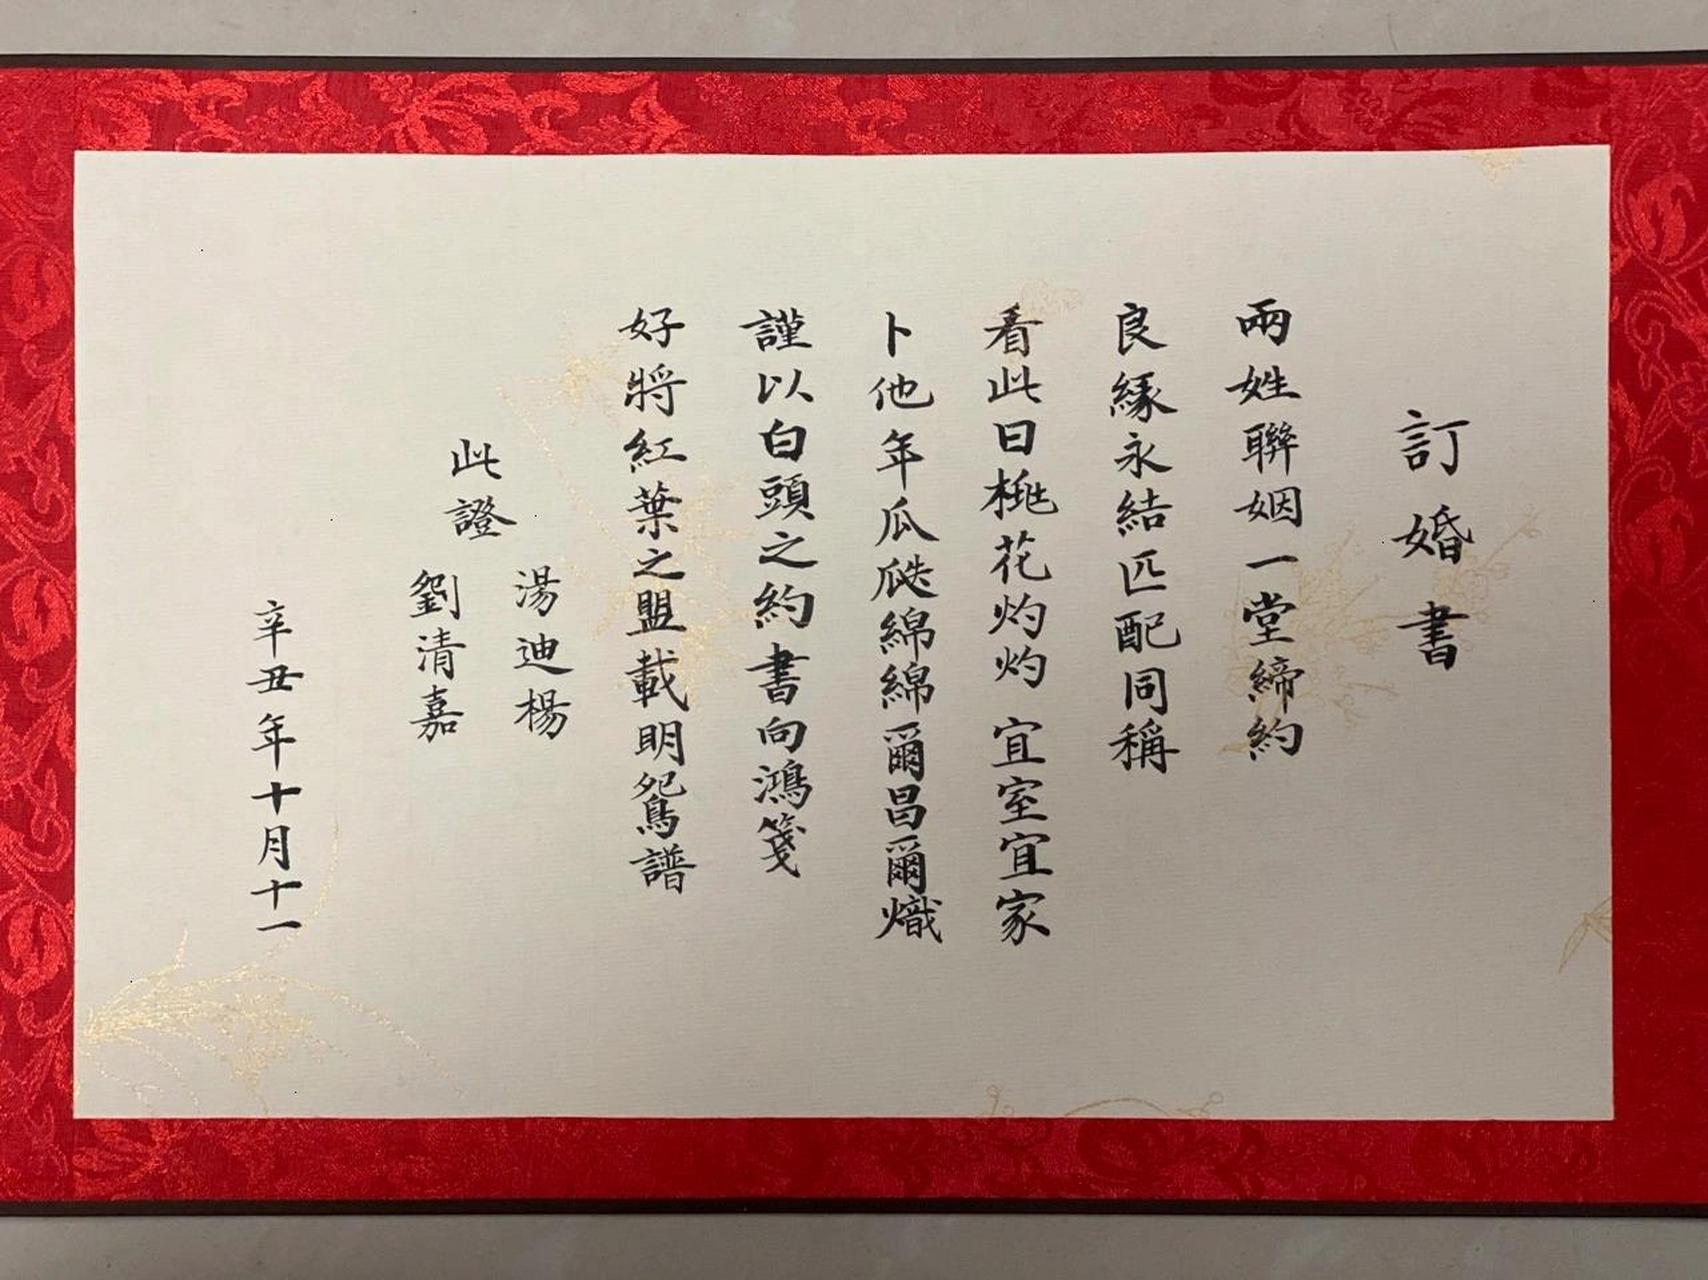 訂婚書
兩姓聯姻一堂締約
良緣永結匹配同稱
看此日桃花灼灼宜室宜家
卜他年瓜瓞綿綿爾昌爾熾
謹以白頭之約書向鴻箋
好將紅葉之盟載明鴛譜
此證
湯迪楊
劉清嘉
辛丑年十月十一